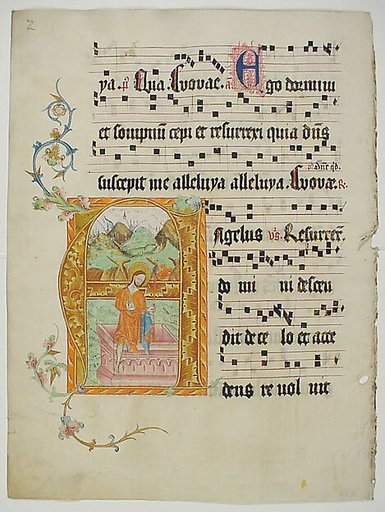 ya. Qua. Evovae. a Ego dormivi
et sompnū cepi et resurrexi quia dn̄s
suscepit me alleluya alleluya. Evovae. R.
Angelus vs. Resurrex̄.
do mi ni descen
dit de ce lo et acce
dens re vol vit